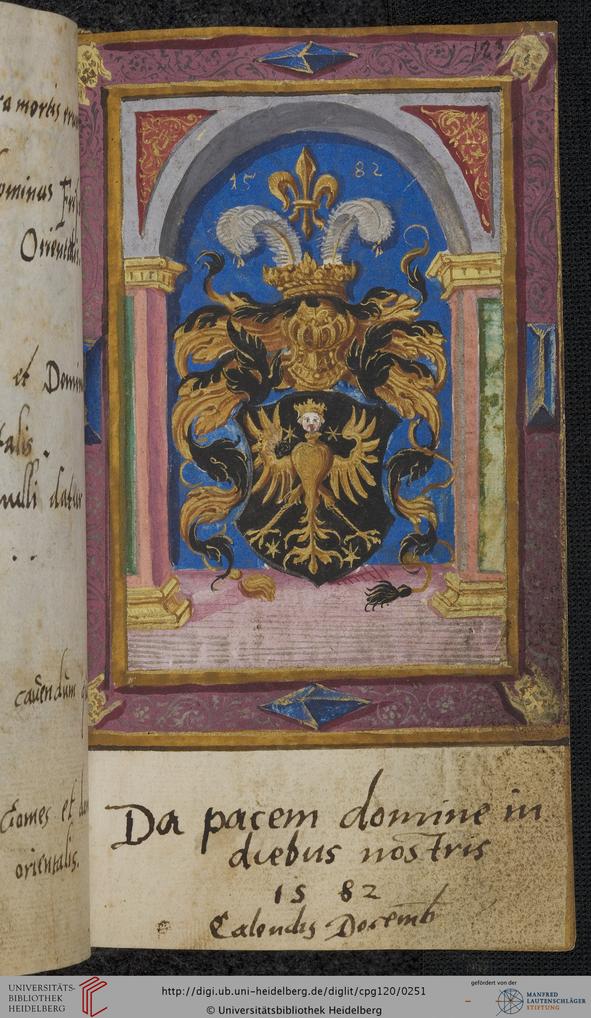 mortis
ominus
Oriental
et Domin
talis.
nulli datur
cavendum
Comes et
orientalis.
123
15 82
Da pacem domine in
diebus nostris
15 82
Calendis Decemb
UNIVERSITÄTS-
BIBLIOTHEK
HEIDELBERG
http://digi.ub.uni-heidelberg.de/diglit/cpg120/0251
© Universitätsbibliothek Heidelberg
gefördert von der
MANFRED
LAUTENSCHLÄGER
STIFTUNG